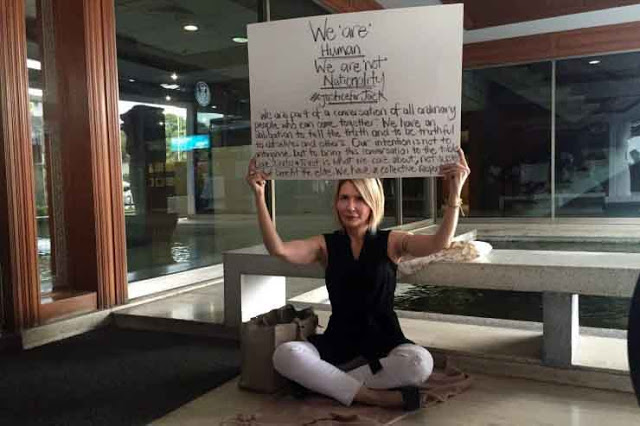 We are
Human
We are not
Nationality
#justiceforJack
We are part of a conversation of all ordinary
people who can come together. We have an
obligation to tell the truth and to be truthful
to ourselves and others. Our intention is not to
antagonize but to bring this conversation to the table
Love, Unity & Trust is what we care about, not
benefit the elite. We have a collective